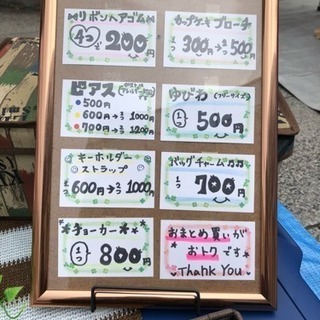 リボンヘアゴム
4つ 200円
カップケーキブローチ
1つ 300円→2つ 500円
ピアス
500円
600円→2つ 1000円
700円→2つ 1200円
ゆびわ (フリーサイズ)
1つ 500円
キーホルダー
ストラップ
1つ 600円→2つ 1000円
バッグチャーム
1つ 700円
チョーカー
1つ 800円
おまとめ買いが
おトクです
Thank You